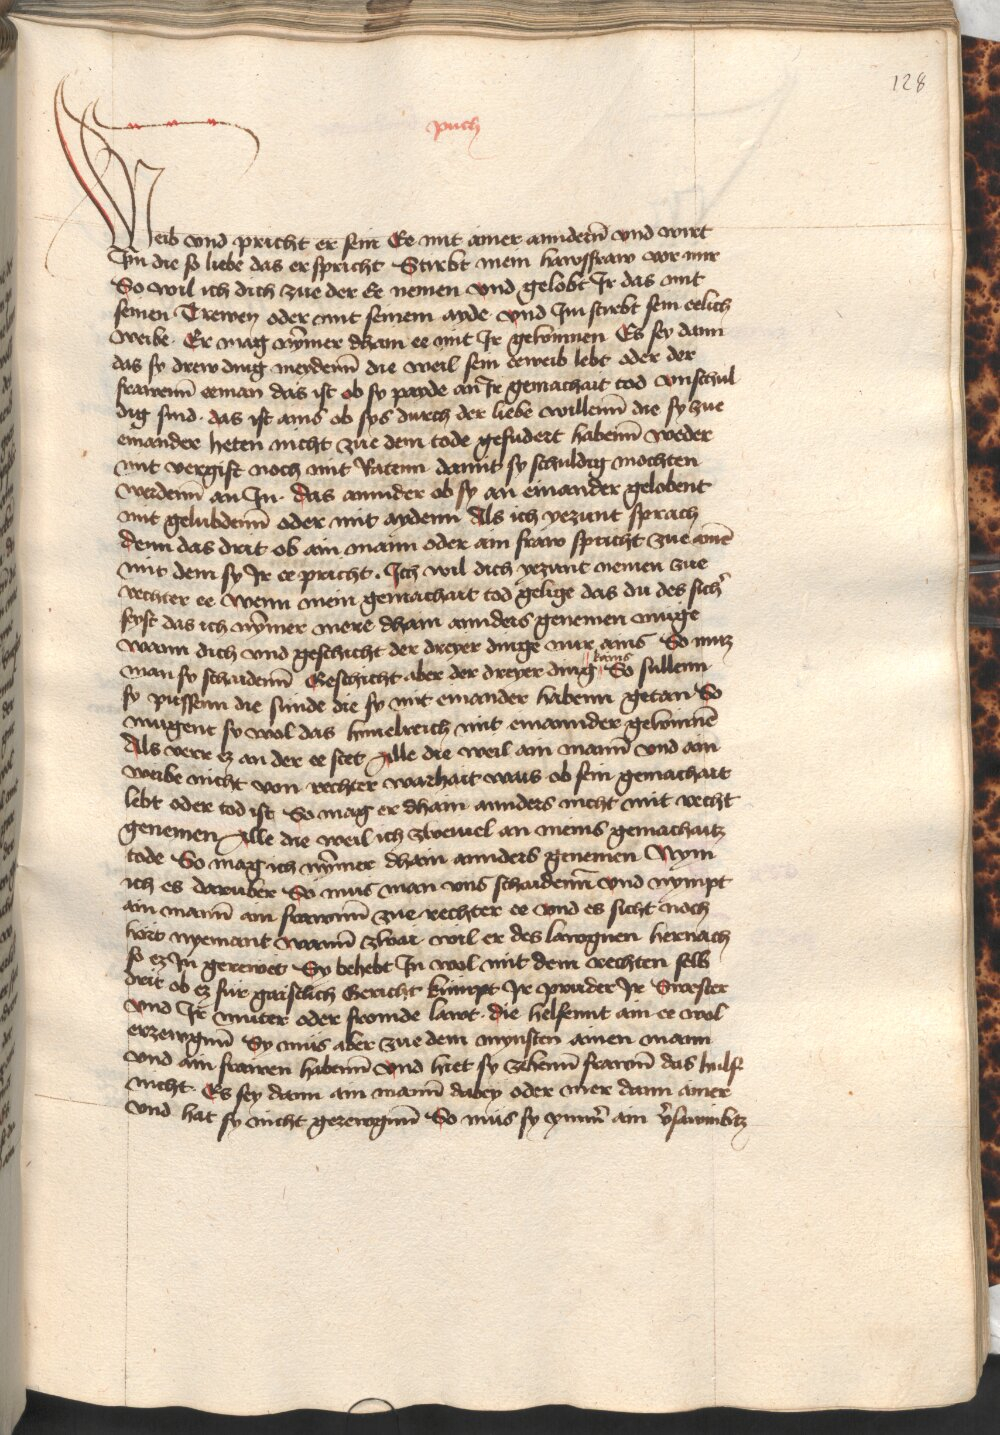 128
puch
Weib vnd pricht er sein Ee mit ainer anndern̄ vnd wirt
Im die so liebe das er spricht Stirbt mein hawsfraw vor mir
So wil ich dich zue der Ee nemen vnd gelobt Ir das mit
seinen Trewen oder mit seinem ayde vnd Im stirbt sein eelich
weibe. Er mag nym̄er dhain ee mit Ir gewinnen Es sey dann
das sy drew ding meydenn̄ die weil sein eeweib lebt oder der
frawenn̄ eeman das ist ob sy payde an Ir gemachait tod vnschul
dig sind. das ist ains ob sys durch der liebe willenn̄ die sy zue
einander heten nicht zue dem tode gefudert habenn̄ weder
mit vergift noch mit Ratenn damit sy schuldig mochten
werdenn̄ an Im. das annder ob sy an einander gelobent
mit gelubdenn̄ oder mit aydenn Als ich yezunt sprach
denn das drit ob ain mann oder ain fraw spricht zue aine
mit dem sy Ir ee pricht. Ich wil dich yezunt nemen zue
rechter ee wenn mein gemachait tod gelige das du des sich̾
seyst das ich nym̄er mere dhain annders genemen muge
wann dich vnd geschicht der dreyer dinge nur ains So muz
man sy schaidenn̄ Geschicht aber der dreyer ding kains So sullenn
sy pussenn die sunde die sy mit einander habenn getan So
mugent sy wol das himelreich mit einannder gewinnē
Als verr ez an der ee stet Alle die weil ain mann̄ vnd ain
weibe nicht von rechter warhait wais ob sein gemachait
lebt oder tod ist So mag er dhain annders nicht mit recht
genemen Alle die weil ich zweiuel an meins gemachaitz
tode So mag ich nym̄er dhain annders genemen Nym
ich es daruber So mus man vns schaidenn̄ vnd nympt
ain mann̄ ain frawnn̄ zue rechter ee vnd es sicht noch
hört nyemant wann̄ zwai wil er des lawgnen hernach
so ez In gerewet Sy behebt In wol mit dem rechten selb
drit ob ez für gaistlich Gericht kumpt Ir pruder Ir Swester
vnd Ir muter oder fromde lawt. die helfennt ain ee wol
erzewgnn̄ Sy mus aber zue dem mynsten ainen mann
vnd ain frawen habenn̄ vnd hiet sy zehenn̄ frawnn̄ das hulf
nicht. Es sey dann ain mann̄ dabey oder mer dann ainer
vnd hat sy nicht gezewgnn̄ So mus sy ymm̾ ain